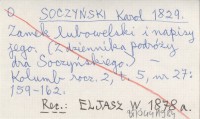 SOCZYŃSKI Karol 1829.
Zamek lubowelski i napisy
jego. (z dziennika podróży
dra Soczyńskiego. —
Kolumb rocz. 2, t. 5, nr 27:
159-162.
Rec.: ELJASZ W. 1878 a.